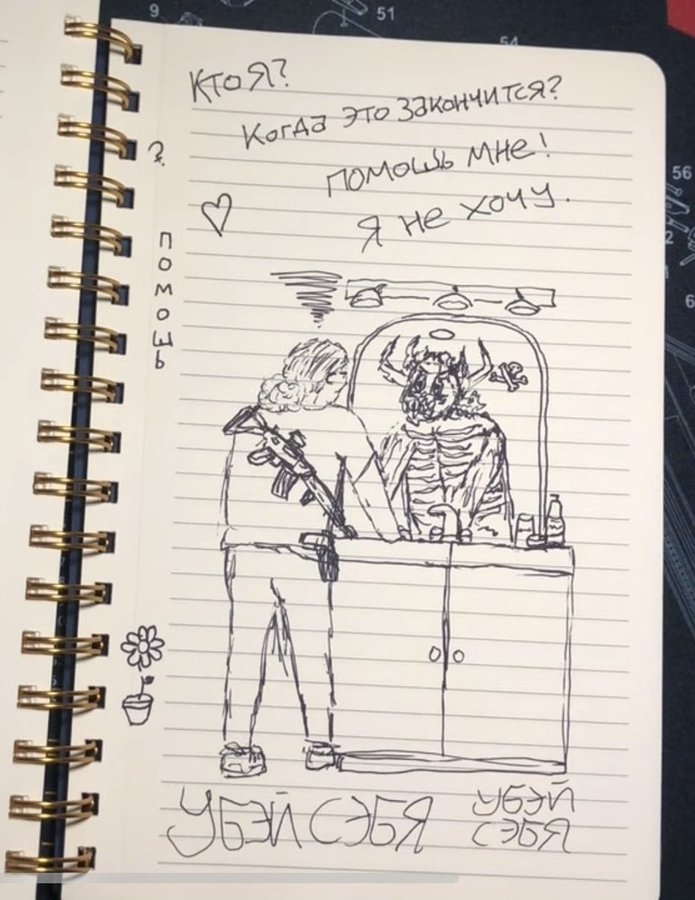 9
51
54
56
КТО Я?
Когда это закончится?
?
помошь мне!
Я не хочу.
помошь
УБЭЙ СЭБЯ
УБЭЙ
СЭБЯ